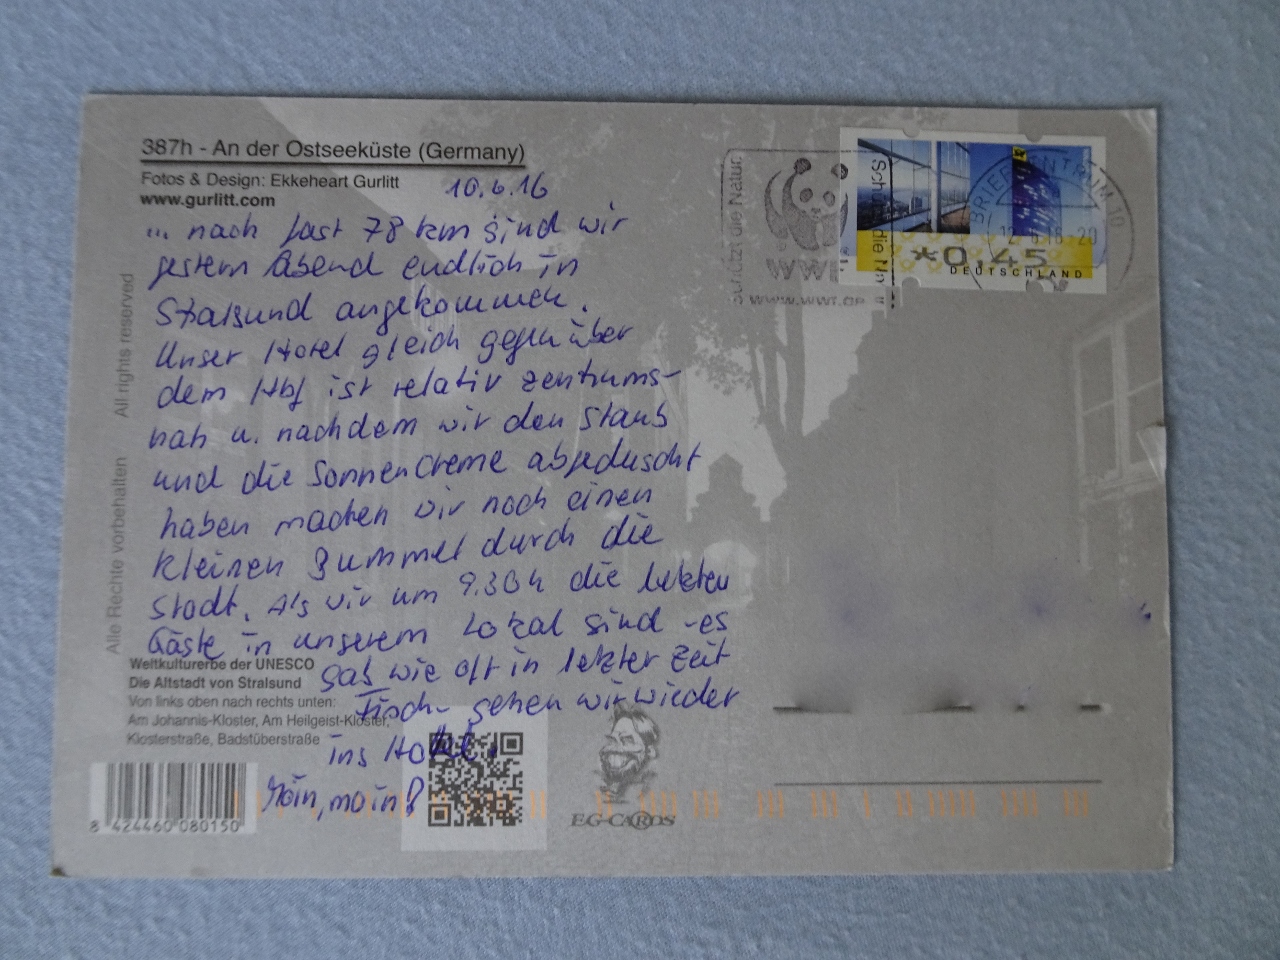 387h - An der Ostseeküste (Germany)
Fotos & Design: Ekkeheart Gurlitt
www.gurlitt.com
10.6.16
... nach fast 78 km sind wir
gestern Abend endlich in
Stralsund angekommen.
Unser Hotel gleich gegenüber
dem Hbf ist relativ zentrums-
nah u. nachdem wir den Staub
und die Sonnencreme abgeduscht
haben machen wir noch einen
kleinen Bummel durch die
Stadt. Als wir um 9.30h die letzten
Gäste in unserem Lokal sind - es
gab wie oft in letzter Zeit
Fisch - gehen wir wieder
ins Hotel.
Moin, moin!
Alle Rechte vorbehalten All rights reserved
Weltkulturerbe der UNESCO
Die Altstadt von Stralsund
Von links oben nach rechts unten:
Am Johannis-Kloster, Am Heilgeist-Kloster,
Klosterstraße, Badstüberstraße
8 424460 080150
EG-CARDS
Schützt die Natur
WWF
www.wwf.de
Schützt die Natur
BRIEFZENTRUM 10
*0,45
DEUTSCHLAND